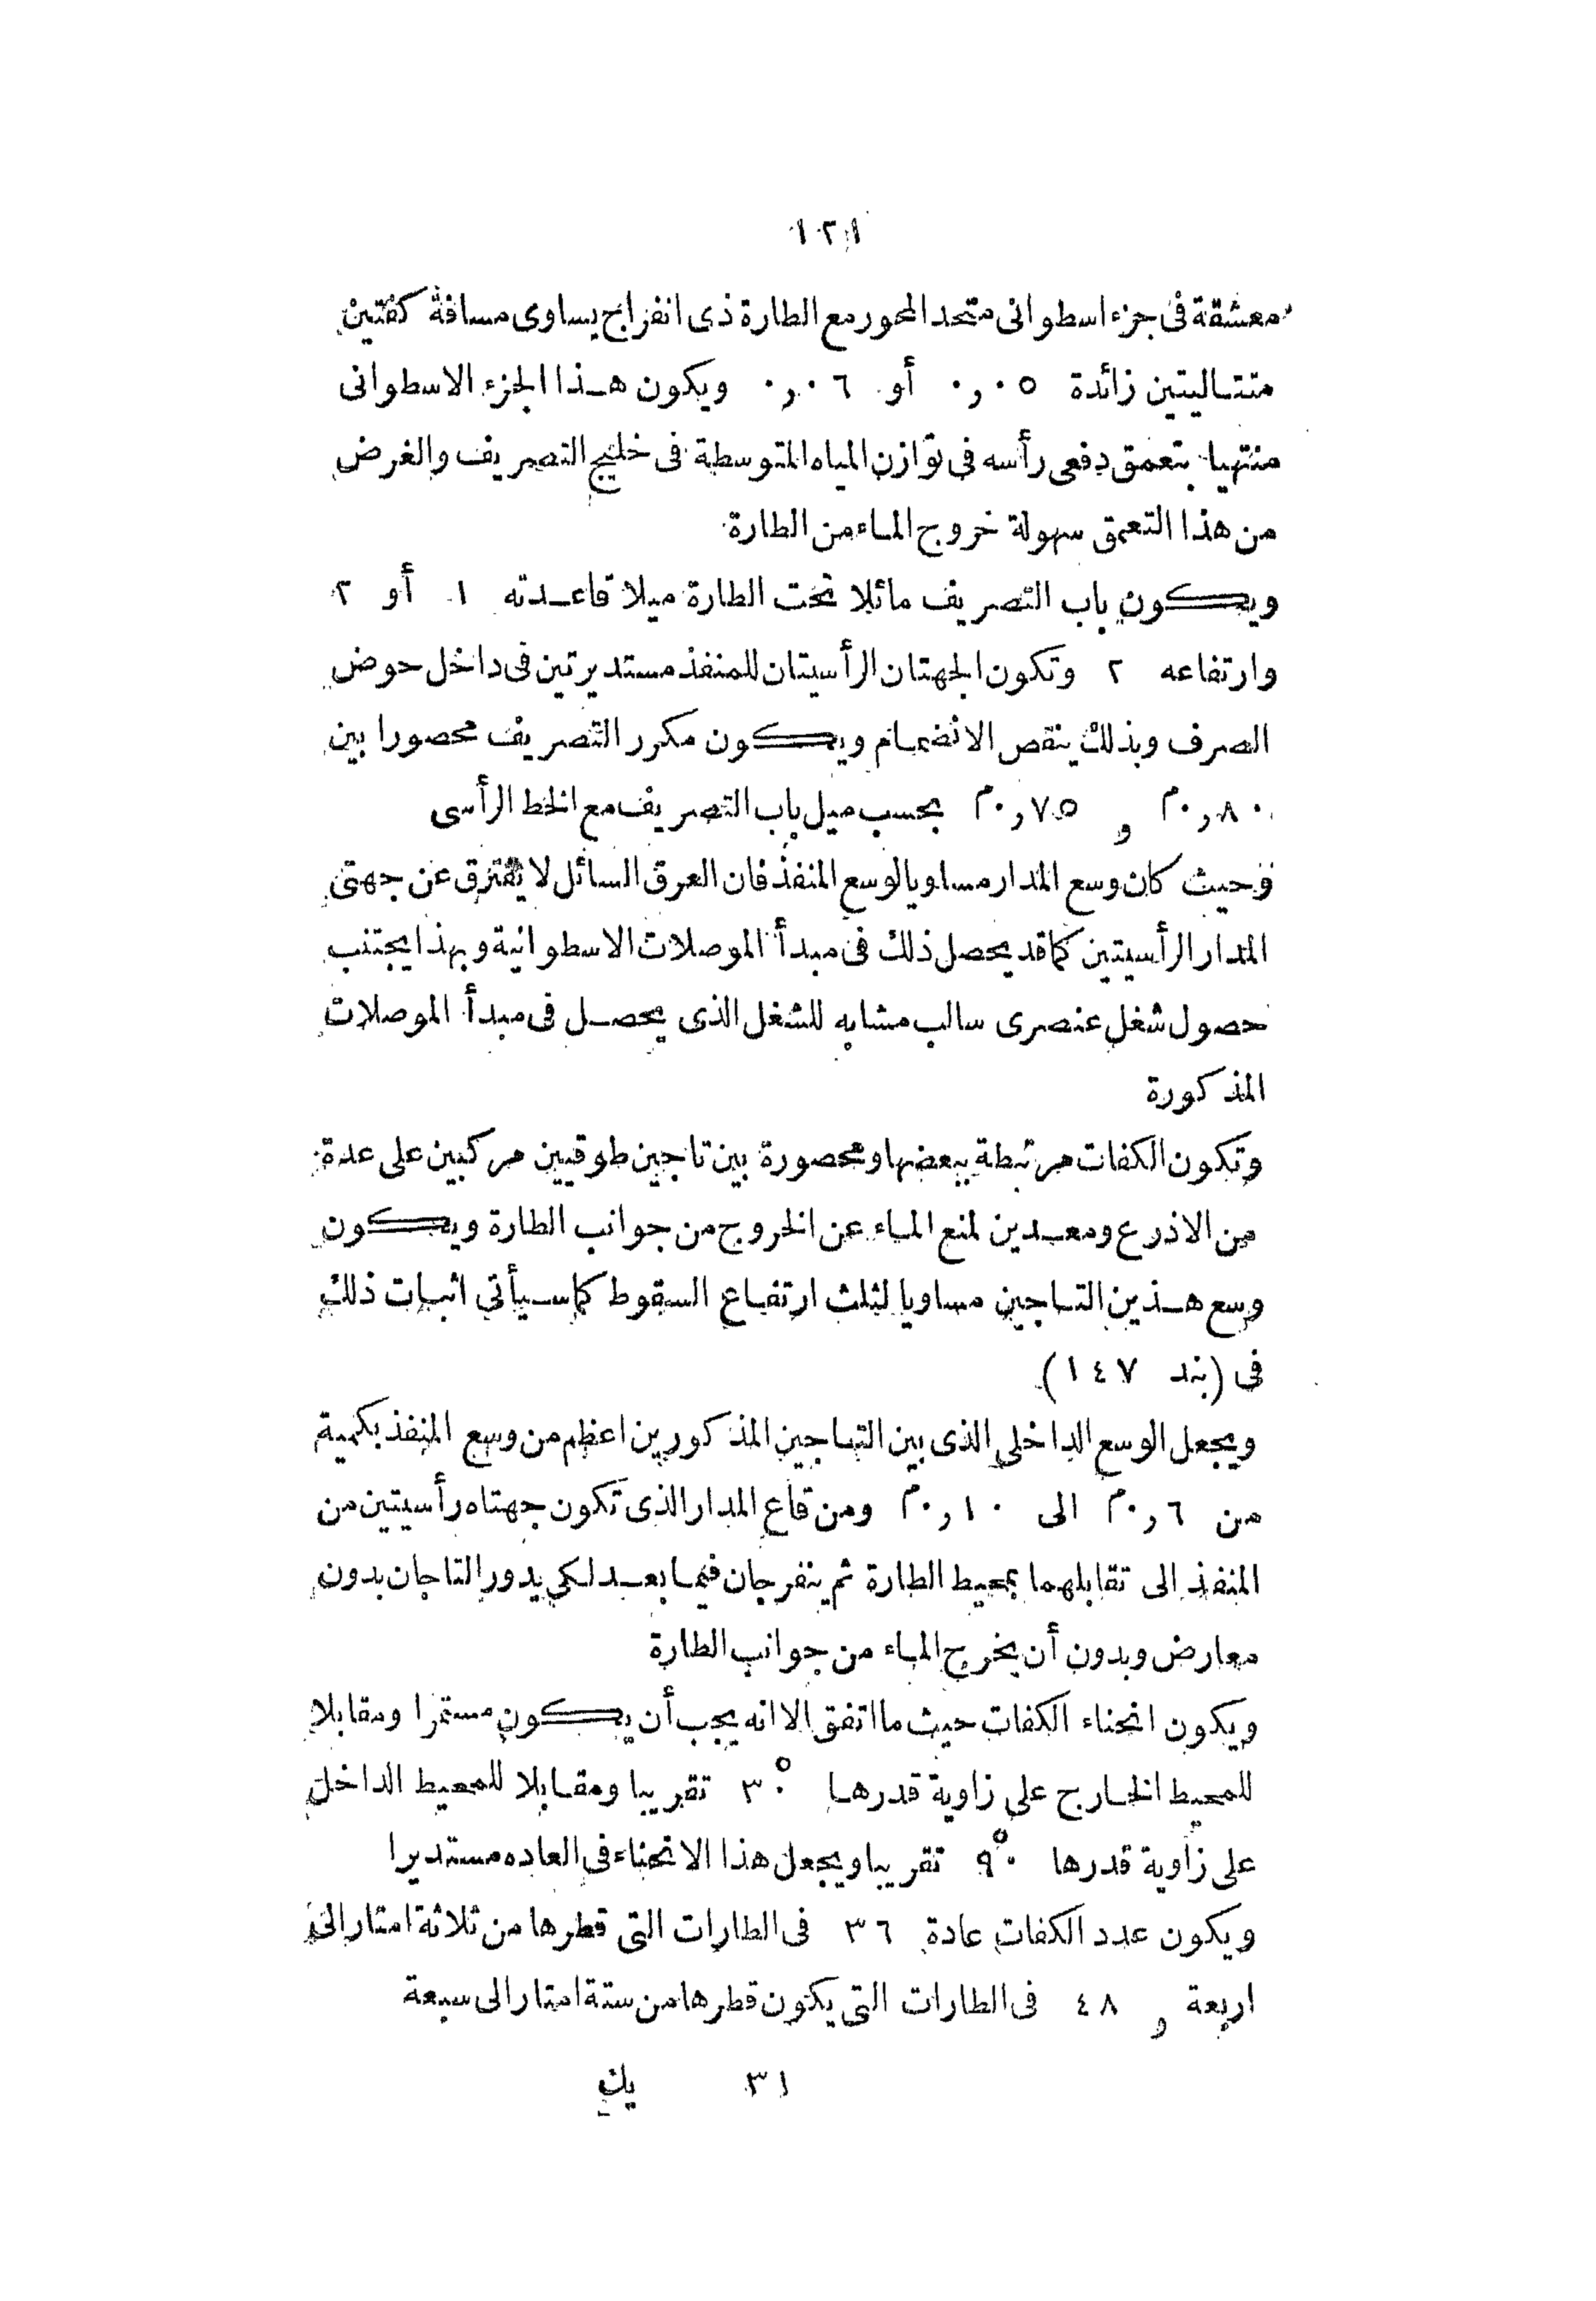 ١٢١
معشقة فى جزء اسطوانى متحد المحور مع الطارة ذى انفراج يساوى مسافة كفتين
متتاليتين زائدة ٠٫٠٥ أو ٠٫٠٦ ويكون هذا الجزء الاسطوانى
منتهيا بتعمق دفعى رأسه فى توازن المياه المتوسطة فى خليج التصريف والغرض
من هذا التعمق سهولة خروج الماء من الطارة
ويكون باب التصريف مائلا تحت الطارة ميلا قاعدته ١ أو ٢
وارتفاعه ٢ وتكون الجهتان الرأسيتان للمنفذ مستديرتين فى داخل حوض
الصرف وبذلك ينقص الانضمام ويكون مكرر التصريف محصورا بين
٠٫٨٠م و ٠٫٧٥م بحسب ميل باب التصريف مع الخط الرأسى
وحيث كان وسع المدار مساويا لوسع المنفذ فان العرق السائل لا يفترق عن جهتى
المدار الرأسيتين كما قد يحصل ذلك فى مبدأ الموصلات الاسطوانية وبهذا يجتنب
حصول شغل عنصرى سالب مشابه للشغل الذى يحصل فى مبدأ الموصلات
المذكورة
وتكون الكفات مرتبطة ببعضها ومحصورة بين تاجين طوقيين مركبين على عدة
من الاذرع ومعدين لمنع الماء عن الخروج من جوانب الطارة ويكون
وسع هذين التاجين مساويا لثلث ارتفاع السقوط كما سيأتى اثبات ذلك
فى (بند ١٤٧)
ويجعل الوسع الداخلى الذى بين التاجين المذكورين اعظم من وسع المنفذ بكمية
من ٠٫٦م الى ٠٫١٠م ومن قاع المدار الذى تكون جهتاه رأسيتين من
المنفذ الى تقابلهما بمحيط الطارة ثم ينفرجان فيما بعد لكى يدور التاجان بدون
معارض وبدون أن يخرج الماء من جوانب الطارة
ويكون انحناء الكفات حيث ما اتفق الا انه يجب أن يكون مستمرا ومقابلا
للمحيط الخارج على زاوية قدرها ٣٠° تقريبا ومقابلا للمحيط الداخل
على زاوية قدرها ٩٠° تقريبا ويجعل هذا الانحناء فى العاده مستديرا
ويكون عدد الكفات عادة ٣٦ فى الطارات التى قطرها من ثلاثة امتار الى
اربعة و ٤٨ فى الطارات التى يكون قطرها من ستة امتار الى سبعة
٣١ يك